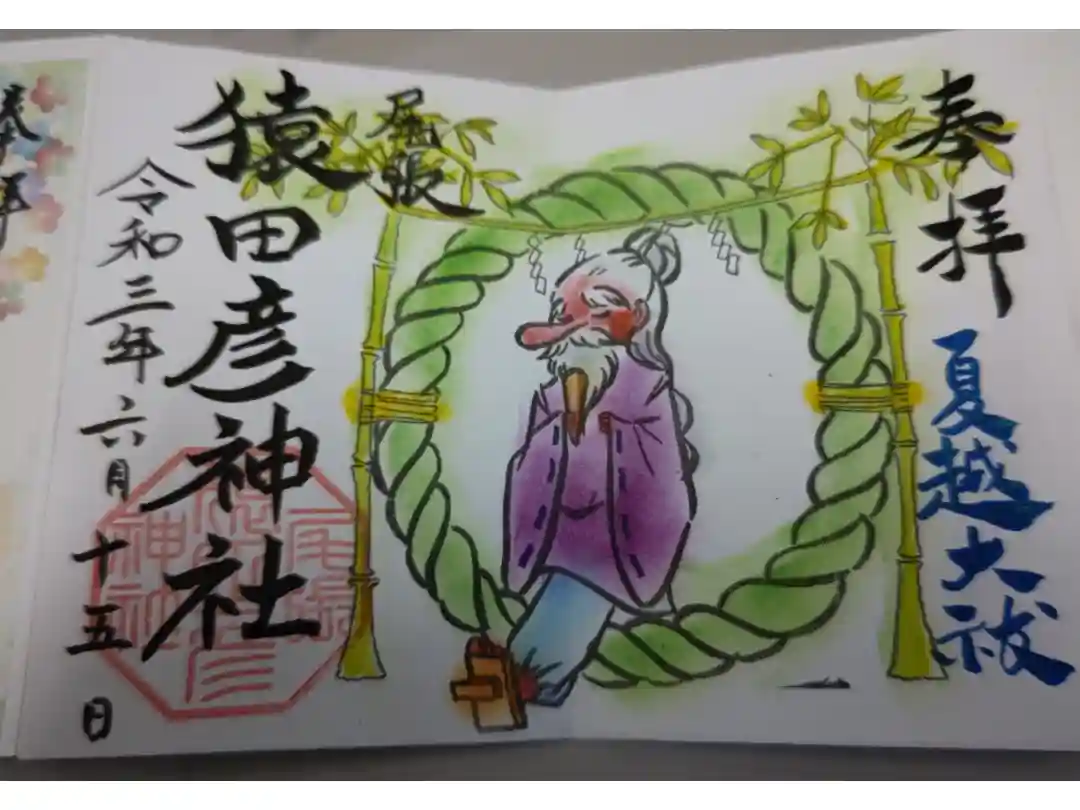 奉拝
夏越大祓
尾張
猿田彦神社
令和三年六月十五日
奉拝